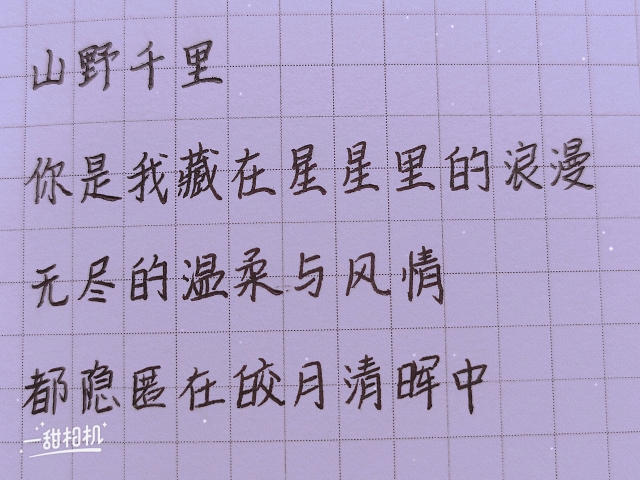 山野千里
你是我藏在星星里的浪漫
无尽的温柔与风情
都隐匿在皎月清晖中
一甜相机